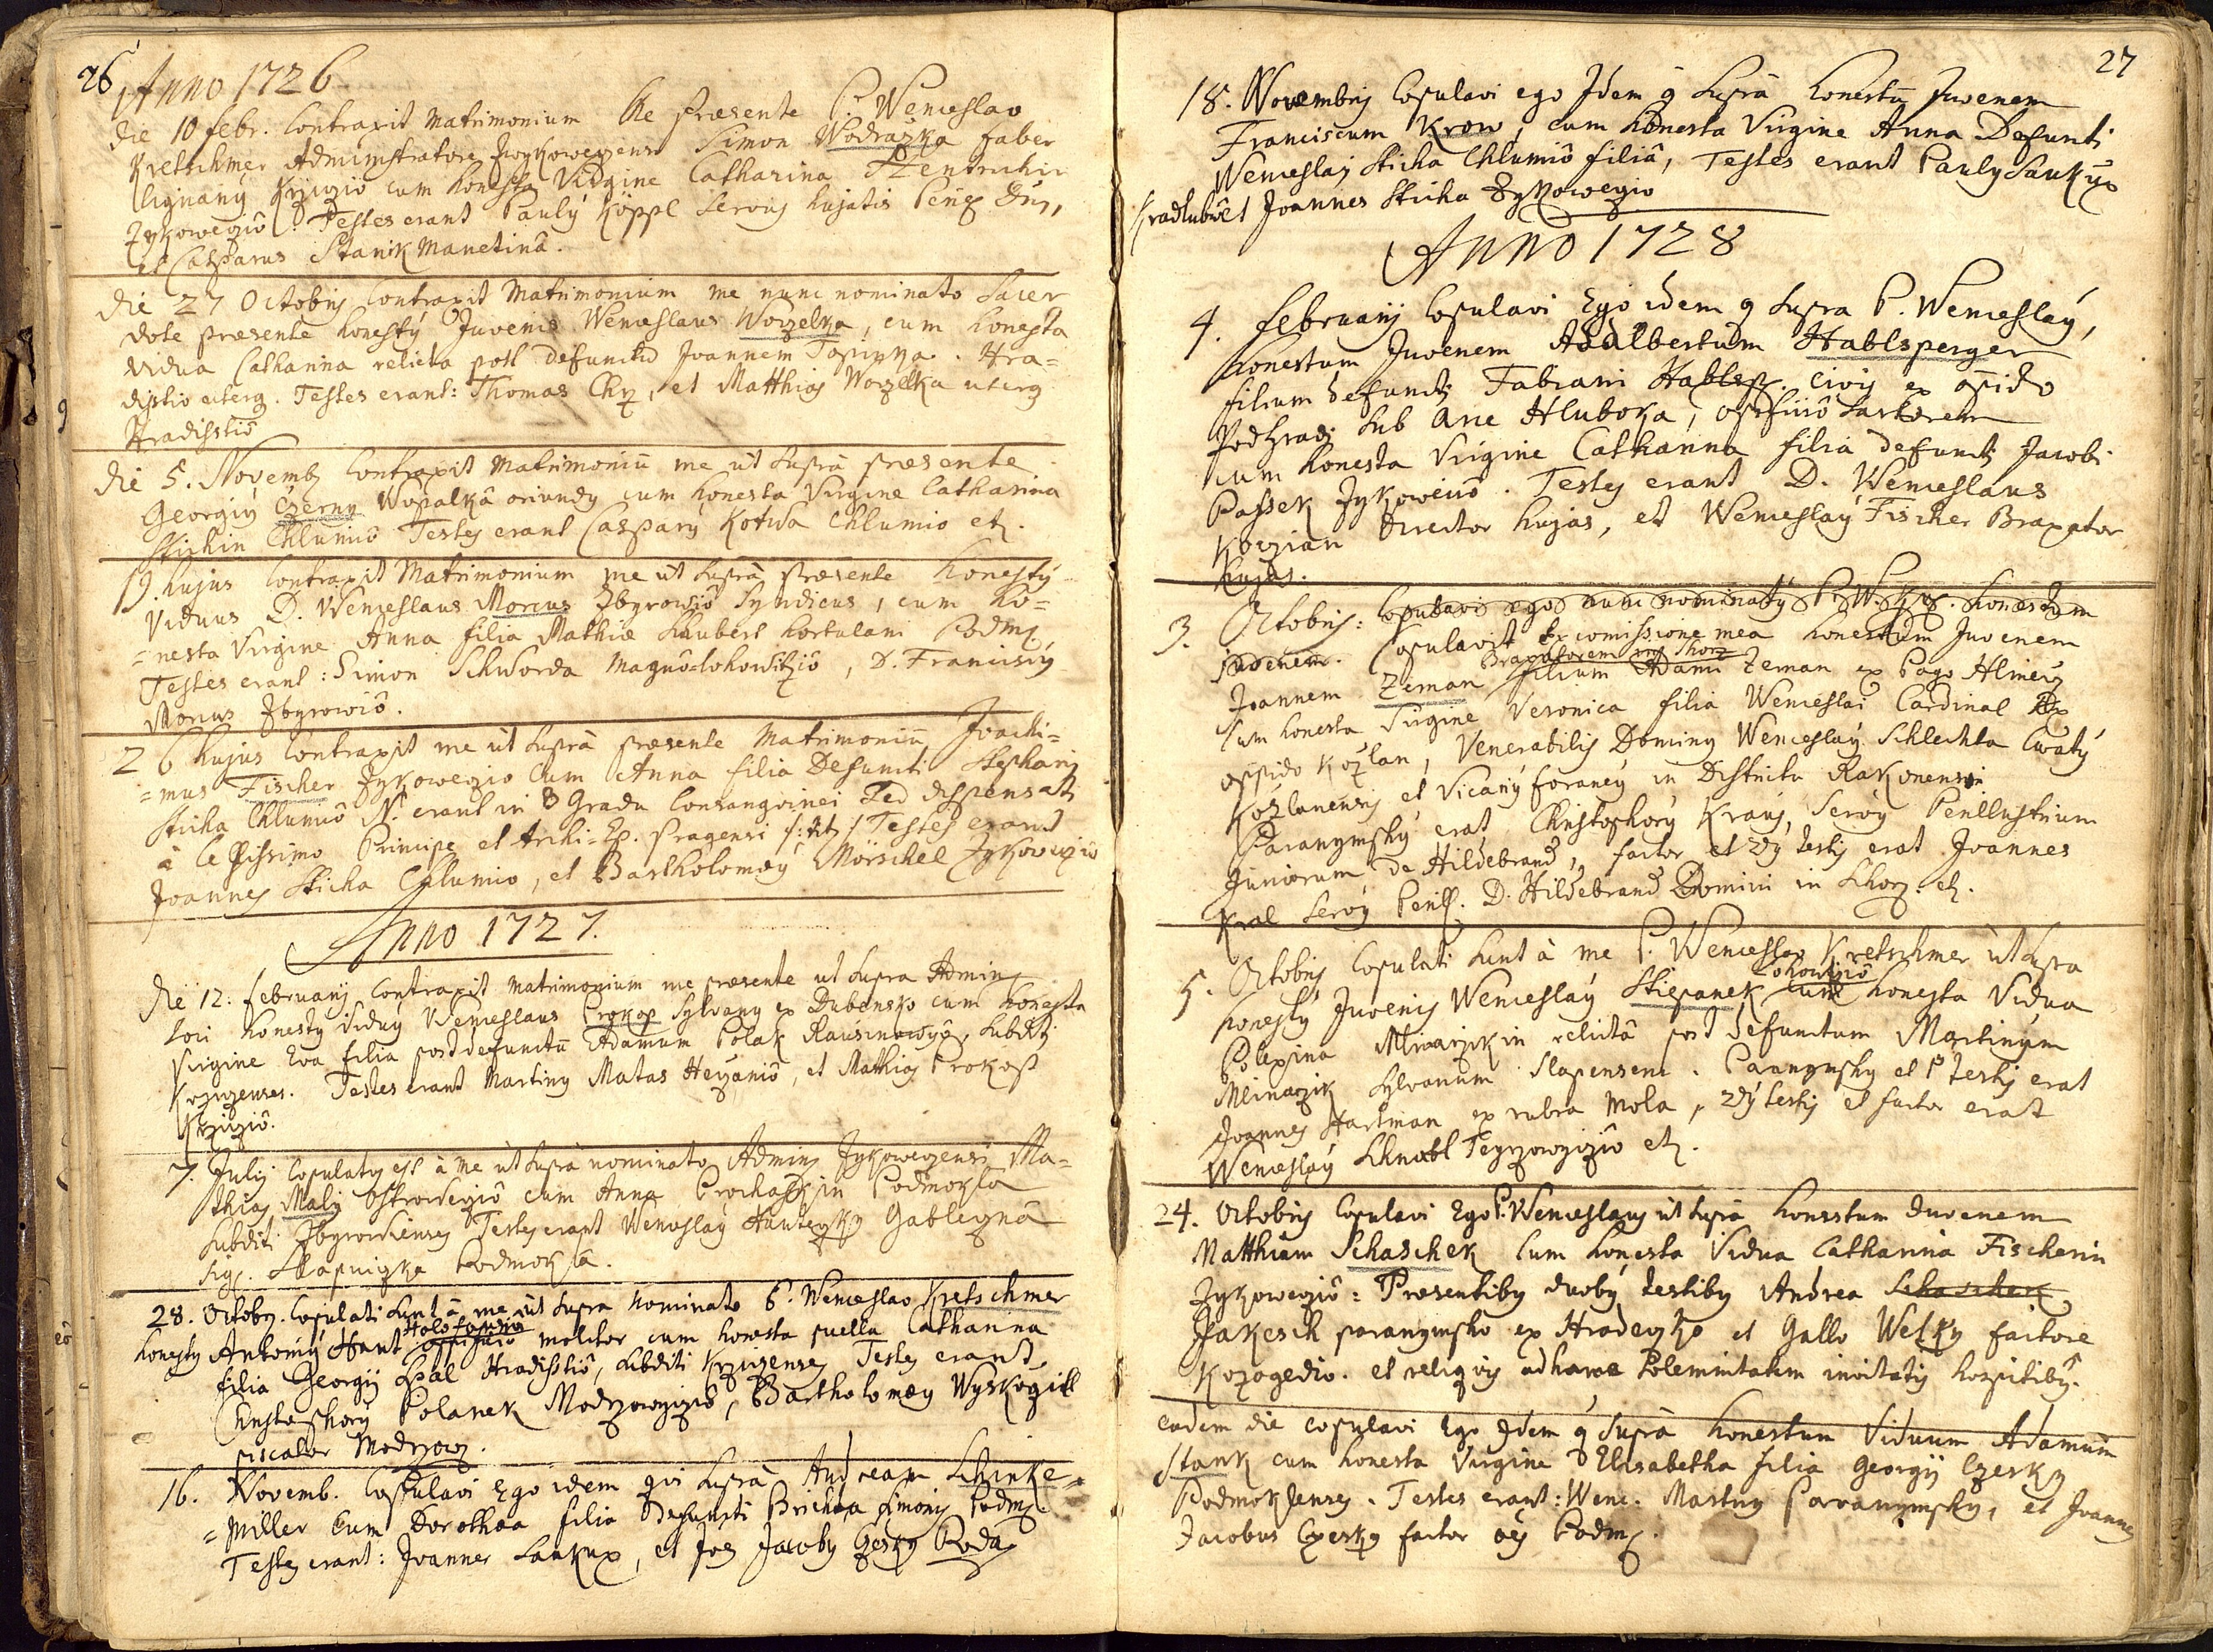 26 Anno 1726
Die 10 febr. Contraxit Matrimonium Me Præsente P. Wenceslao
Kretschmer Administratore Zykowezensi Simon Wodražka faber
lignarỹ Krziziô cum honesta Virgine Catharina
Zykowezio. Testes erant Paulý Köppl Servus hujatis
et Casparus Stanik Manetinâ.
Die 27 Octobris Contraxit Matrimonium me nunc nominato Sacer
dote præsente honestý Juvenis Wenceslaus Worzelka, cum honesta
vidua Catharina relicta post defunctũ Joannem Topinka. Hra=
distio uterq. Testes erant: Thomas Chyz, et Matthias Worzelka uterq
Hradisstiô
Die 5. Novemb Contraxit Matrimoniũ me ut Suprà præsente
Georgiỹ Czerny Wopalkâ oriundy cum honesta Virgine Catharina
Stichin Chlumiô Testes erant Caspary Kotwa Chlumio etc.
19. hujus Contraxit Matrimonium me ut Suprà præsente honestý
Viduus D. Wenceslaus Morcus Zbyrowiô Syndicus, cum ho=
=nesta Virgine Anna filia Mathiæ Schubert hortulani Podm.
Testes erant: Simon Schworda Magnôlohowitziô, D. Franciscý
Morcus Zbyrowiô.
26 hujus Contraxit me ut Suprà præsente Matrimoniũ Joachi=
=mus Fischer Zykowezio Cum Anna filia Defuncti Stephani
Sticha Chlumiô N. erant in 3 Gradu Consangvinei Sed dispensati
à Celsissimo Principe et Archi-Ep. Pragensi Testes erant
Joannes Sticha Chlumio, et Bartholomæy Mörschel Zykowezio
Anno 1727.
Die 12. februarij Contraxit Matrimonium me præsente ut Supra Adminis
tori honesty viduỹ Wenceslaus Prokop Sylvany ex Dubensko cum honesta
Virgine Eva filia post defunctũ Adamum Polak Rausinowyô, Subditi
Krzizenses. Testes erant Martiny Matas Herzaniô, et Mathias Prokop
Krziziô.
7. Julij Copulaty est à me ut Suprà nominato Adminis Zykowezensi Ma=
thias Maly Ostroweziô cum Anna Prochaskin Podmoklâ
Subditi Zbyrowienses Testes erant Wenceslaỹ Hauteyky Gableznâ
Sig. Slapniczka Podmoklâ.
28. Octobr. Copulati Sunt à me ut Supra nominato P. Wenceslao Kretschmer
honesty Antoniỹ Hant officio molitor cum honesta puella Catharina
filia Georgij Kral Hradisstiô, Subditi Krzizenses Testes erant
Christophorỹ Polanek Modrzowiziô, Bartholomæy Wyskozill
piscator Modrzow.
16. Novemb. Copulavi Ego idem qui Suprà Andream Schinke=
=Miller Cum Dorothea filia Defuncti Brichta Simonis Podm.
Testes erant: Joannes Saukup, et Joes Jacoby Czesky Poda
27
18. Novembris Copulavi ego Idem q Suprà honestũ Juvenem
Franciscum Krow, cum honesta Virgine Anna Defuncti
Wenceslai Sticha Chlumiô filiâ, Testes erant Pauly Saukup
Kradlubiô et Joannes Sticha Zykowezio
Anno 1728
4. februarij Copulavi Ego idem q Supra P. Wenceslaỹ,
honestum Juvenem Adalbertum Hablsperger
filium defuncti Fabiani Hablsp. Civis ex opido
Podhrad Sub Arce Hluboka, officiô Sartorem
cum honesta Virgine Catharina filia defuncti Jacobi
Passek Zykoweiiô. Testes erant D. Wenceslaus
Koczian Director hujas, et Wenceslaỹ Fischer Braxator
hujas.
3. Octobris: Copulavi ego nunc nominatỹ P. W. K. honestum
juvenem. Copulavit Ex comissione mea honestum Juvenem
Braxatorem in Shorz
Joannem Zeman filium Adami Zeman ex Pago Hliney
Cum honesta Virgine Veronica filia Wenceslai Cardinal Ex
oppido Kožlan, Venerabilis Dominy Wenceslaỹ Schlechta Curatý
Kožlanensis et Vicariỹ foraneỹ in Districtu Rakonensi
Paranymphỹ erat Christophorỹ Kraus, Servỹ Perillustrium
Juniorum de Hildebrand, factor et 2dỹ testis erat Joannes
Kral Servỹ Perill. D. Hildebrand Domini in Schorz. etc.
5. Octobris Copulati Sunt à me P. Wenceslao Kretschmer ut Supra
Lohowiziô
honestỹ Juvenis Wenceslaỹ Stiepanek cum honesta Vidua
Polexina Mlinarzikin relictâ post defunctum Martinum
Mlinarzik Sylvanum Slapensem. Paranymphỹ et P testis erat
Joannes Hartman ex rubra Mola, 2dỹ testis et factor erat
Wenceslaỹ Schnobl Teyrzowiziô etc.
24. Octobris Copulavi Ego P. Wenceslaus ut Suprà honestum Juvenem
Matthiam Schaschek Cum honesta Vidua Catharina Fischerin
Zykoweziô: Præsentibus duobỹ testibus Andrea Schaschek
Jakesch paranympho ex Hradezko et Gallo Welky factore
Kozogedio. et reliquis ad hance Solemnitatem invitatis hospitibỹ.
eadem die copulavi Ego Idem q Suprà honestum Viduum Adamum
Stank cum honesta Virgine Elisabetha filia Georgij Czesky
Podmoklenses. Testes erant: Wenc. Martiny Paranymphỹ, et Joannes
Jacobus Czesky factor Podm.